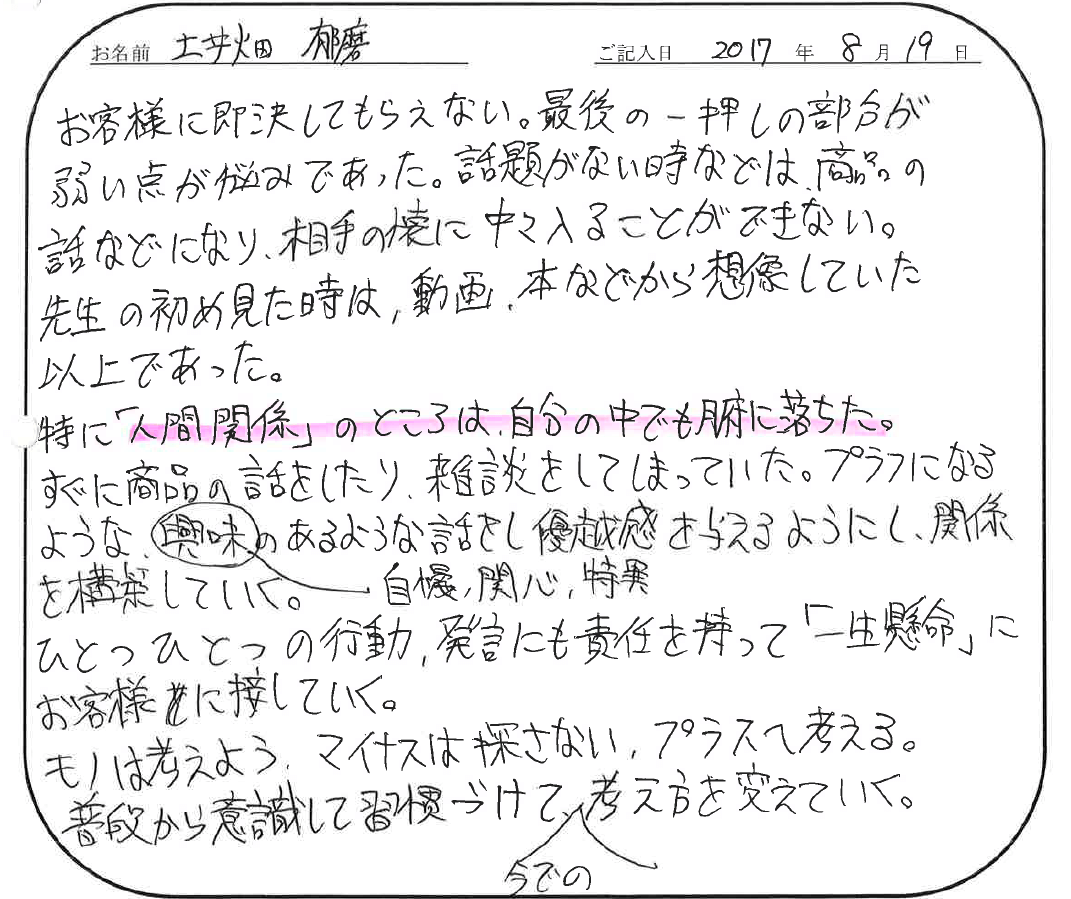 お名前 土井畑 郁磨 ご記入日 2017 年 8 月 19 日
お客様に即決してもらえない。最後の一押しの部分が
弱い点が悩みであった。話題がない時などは、商品の
話などになり、相手の懐に中々入ることができない。
先生の初め見た時は、動画、本などから想像していた
以上であった。
特に「人間関係」のところは、自分の中でも腑に落ちた。
すぐに商品の話をしたり、雑談をしてしまっていた。プラスになる
ような、興味のあるような話をし優越感を与えるようにし、関係
を構築していく。 自慢、関心、特異
ひとつひとつの行動、発言にも責任を持って「一生懸命」に
お客様に接していく。
モノは考えよう、マイナスは探さない、プラスへ考える。
普段から意識して習慣づけて、考え方を変えていく。
今での